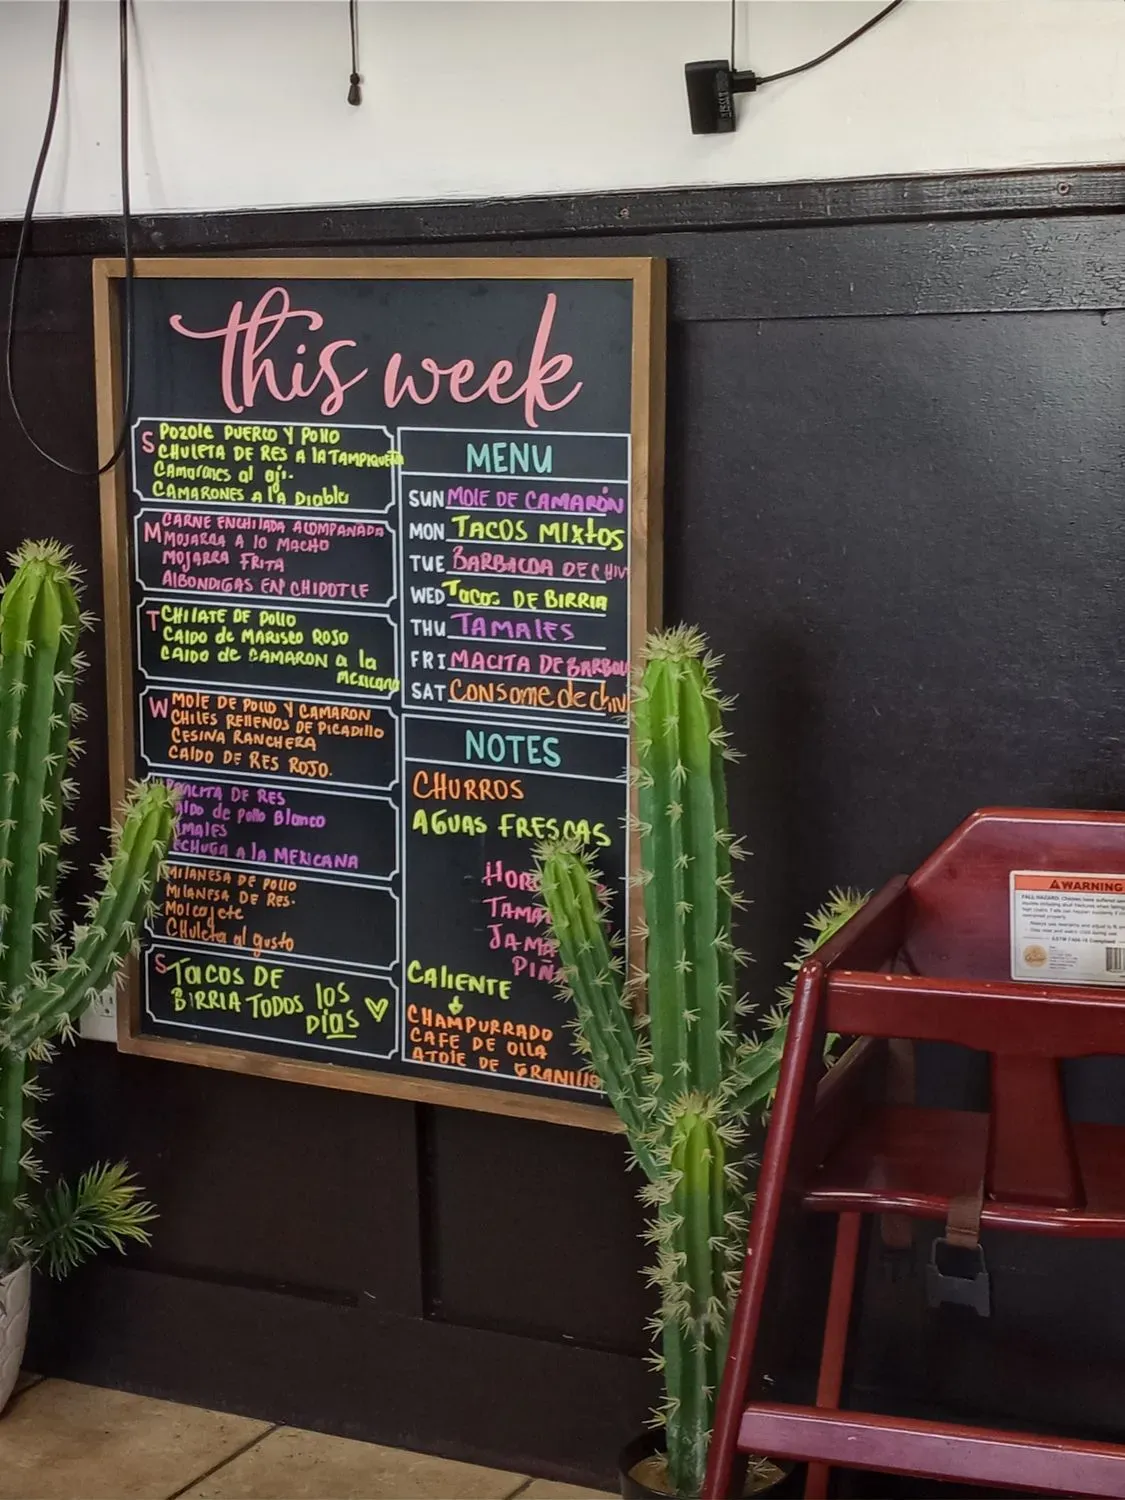 this week
S
POZOLE PUERCO Y POLLO
CHULETA DE RES A LA TAMPIQUEÑA
CAMARONES al aji.
CAMARONES A LA DIABLA
M
CARNE ENCHILADA ACOMPANADA
MOJARRA A LO MACHO
MOJARRA FRITA
ALBONDIGAS EN CHIPOTLE
T
CHILATE DE POLLO
CALDO de MARISCO ROJO
CALDO de CAMARON a la
MEXICANA
W
MOLE DE POLLO Y CAMARON
CHILES RELLENOS DE PICADILLO
CESINA RANCHERA
CALDO DE RES ROJO.
DE RES
de Pollo Blanco
A la MEXICANA
MILANESA DE POLLO
MILANESA DE RES.
Molcajete
Chuleta al gusto
S
TACOS DE
BIRRIA TODOS los
DIAS
MENU
SUN MOLE DE CAMARÓN
MON TACOS MIXTOS
TUE BARBACOA DE CHIV
WED TACOS DE BIRRIA
THU TAMALES
FRI MACITA DE
SAT CONSOME de CHIV
NOTES
CHURROS
AGUAS FRESCAS
CALIENTE
CHAMPURRADO
CAFE DE OLLA
ATOLE DE GRANILLO
WARNING